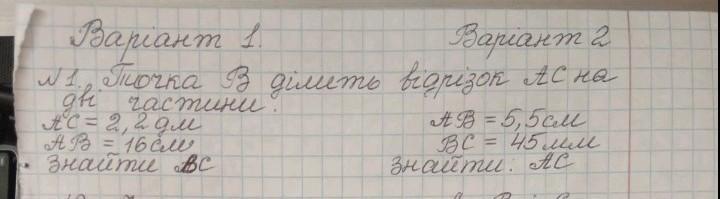 Варіант 1. Варіант 2
№1. Точка В ділить відрізок АС на
дві частини.
АС = 2,2 дм АВ = 5,5 см
АВ = 16 см ВС = 45 мм
Знайти ВС Знайти: АС